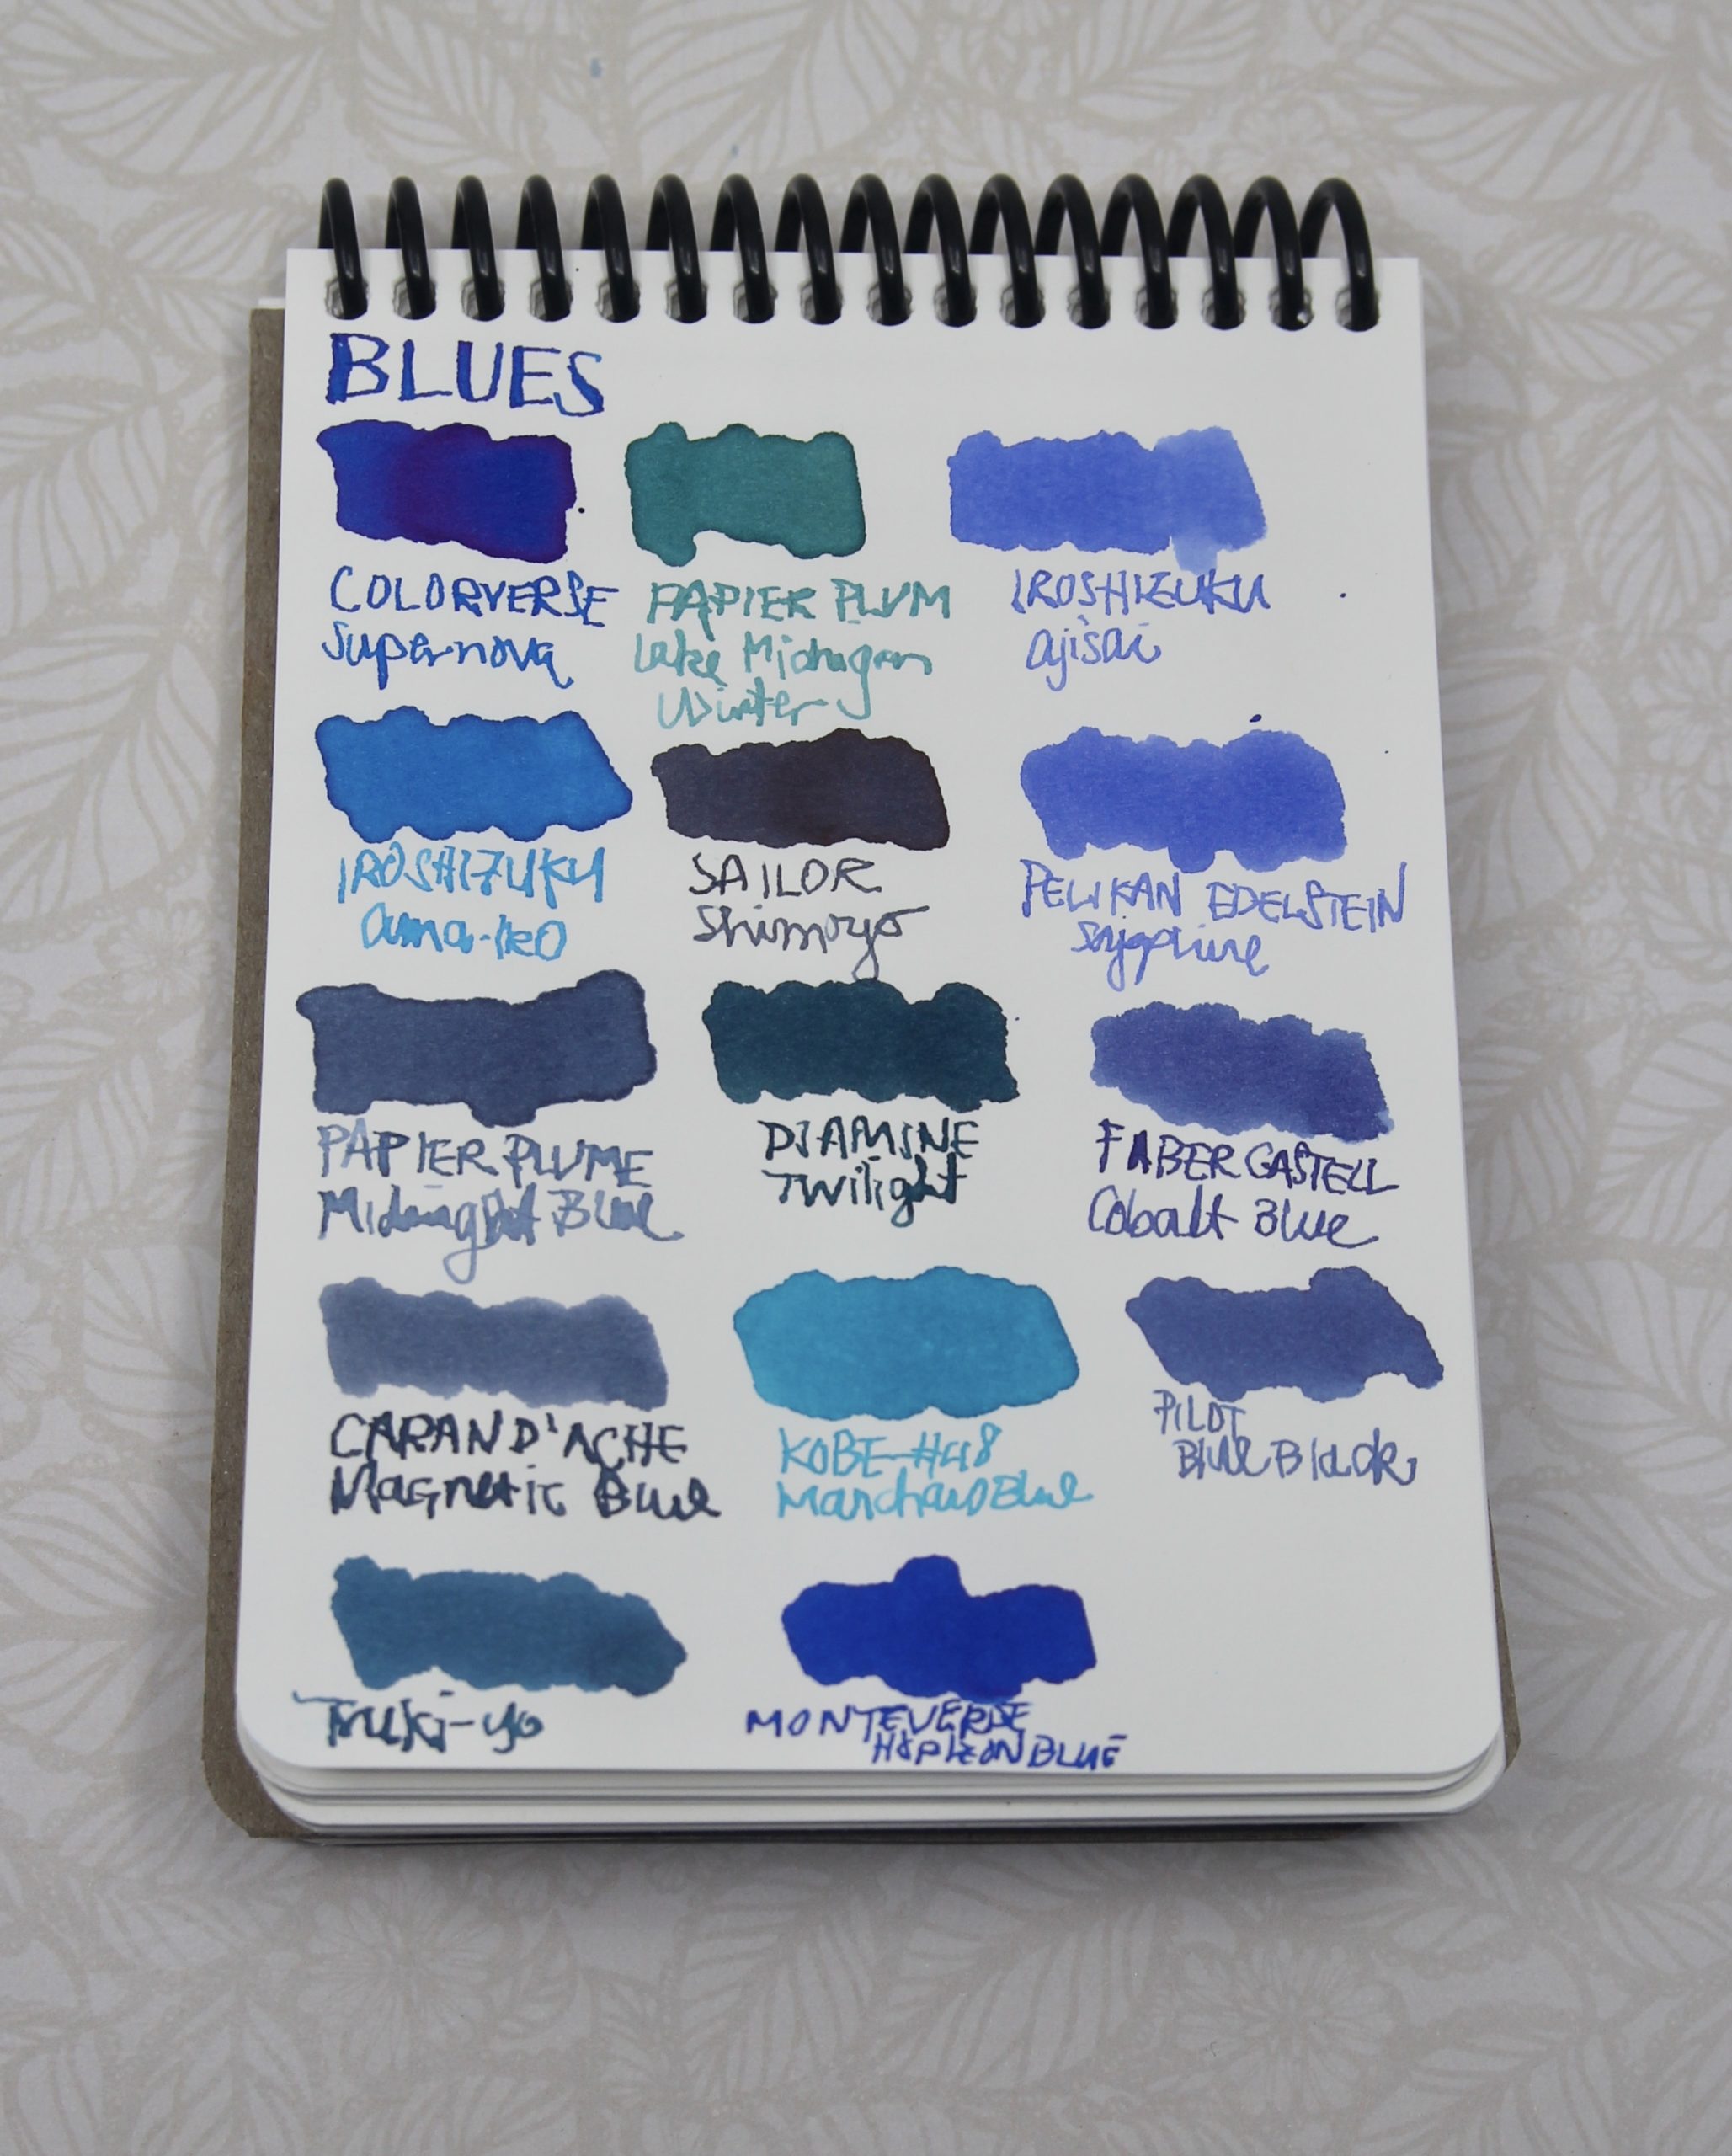 BLUES
COLORVERSE
Supernova
PAPIER PLUM
Lake Michigan
Winter
IROSHIZUKU
ajisai
IROSHIZUKU
ama-iro
SAILOR
Shimoyo
PELIKAN EDELSTEIN
Sapphire
PAPIER PLUME
Midnight Blue
DIAMINE
Twilight
FABER CASTELL
Cobalt Blue
CARAN D'ACHE
Magnetic Blue
KOBE #48
Blue
PILOT
Blue Black
Tsuki-yo
MONTEVERDE
HORIZON BLUE